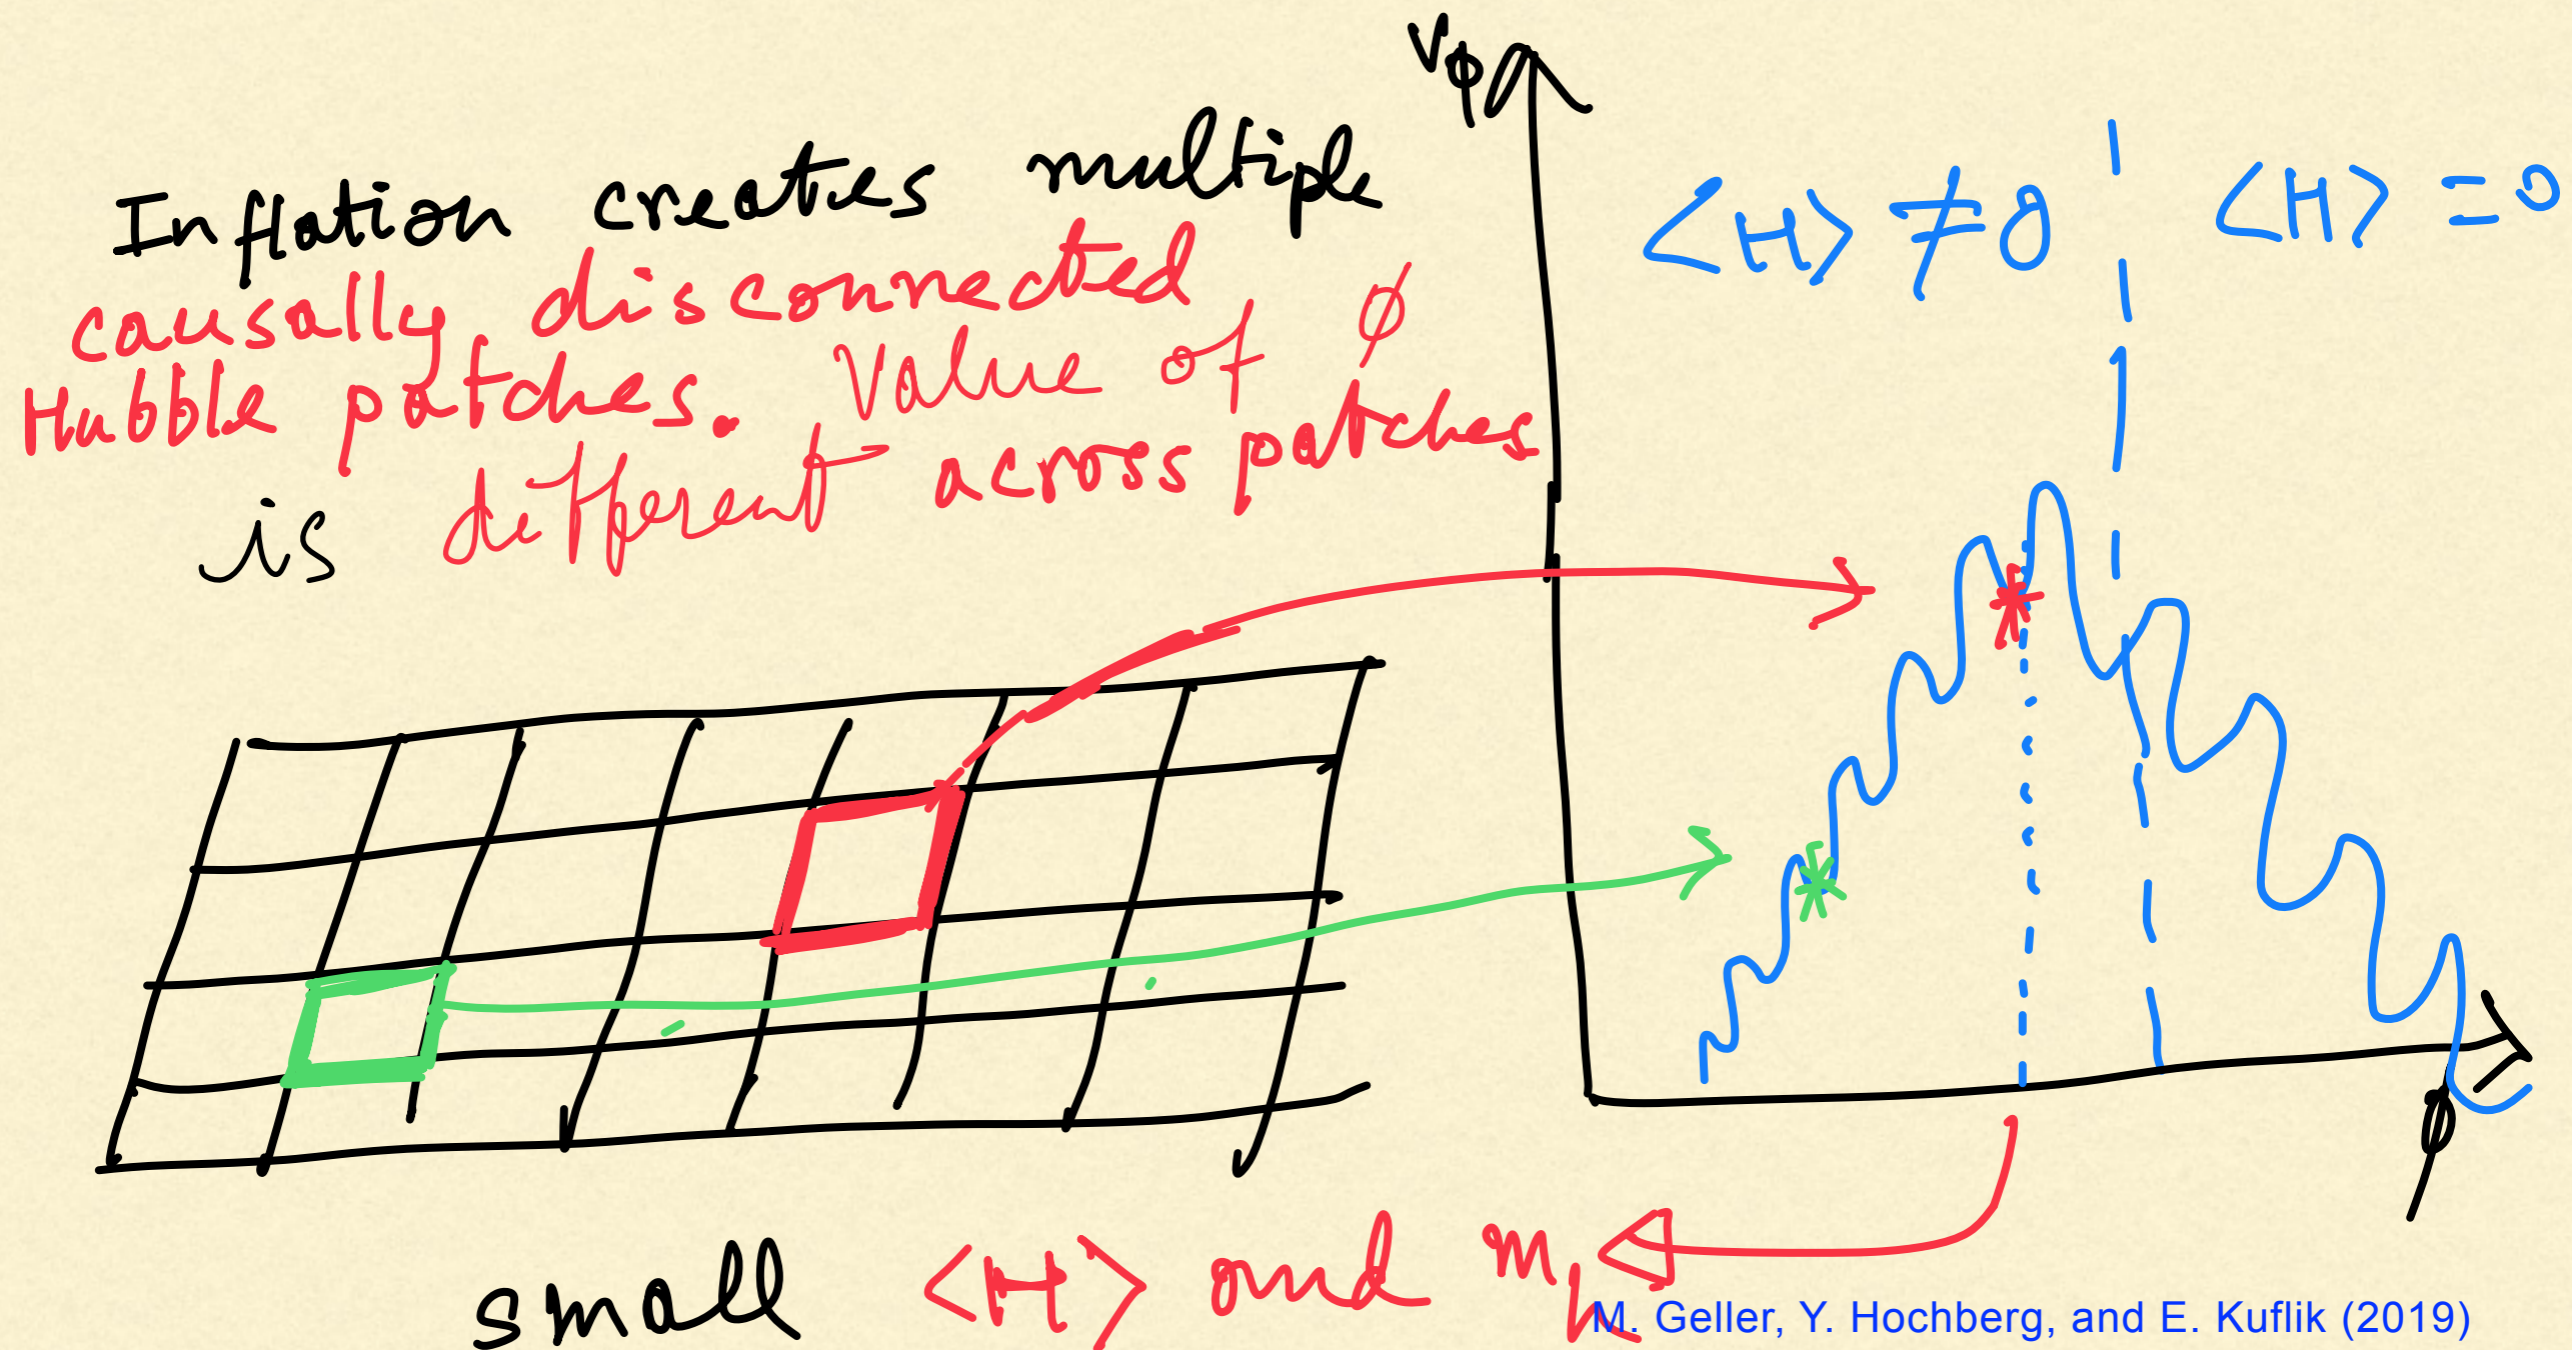 Inflation creates multiple
causally disconnected
Hubble patches. Value of ϕ
is different across patches
V_ϕ
<H> ≠ 0
<H> = 0
ϕ
small <H> and m_h
M. Geller, Y. Hochberg, and E. Kuflik (2019)